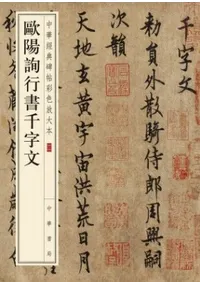 千字文
員外散騎侍郎周興嗣
次韻
天地玄黃宇宙洪荒日月
中華經典碑帖彩色放大本
歐陽詢行書千字文
中華書局